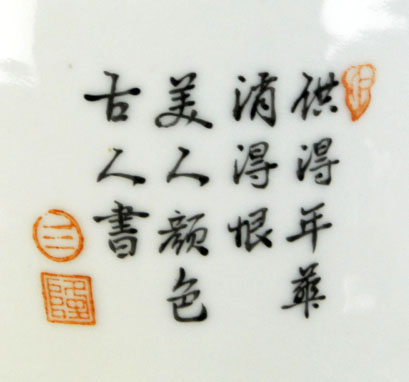 供得年華
消得恨
美人顏色
古人書